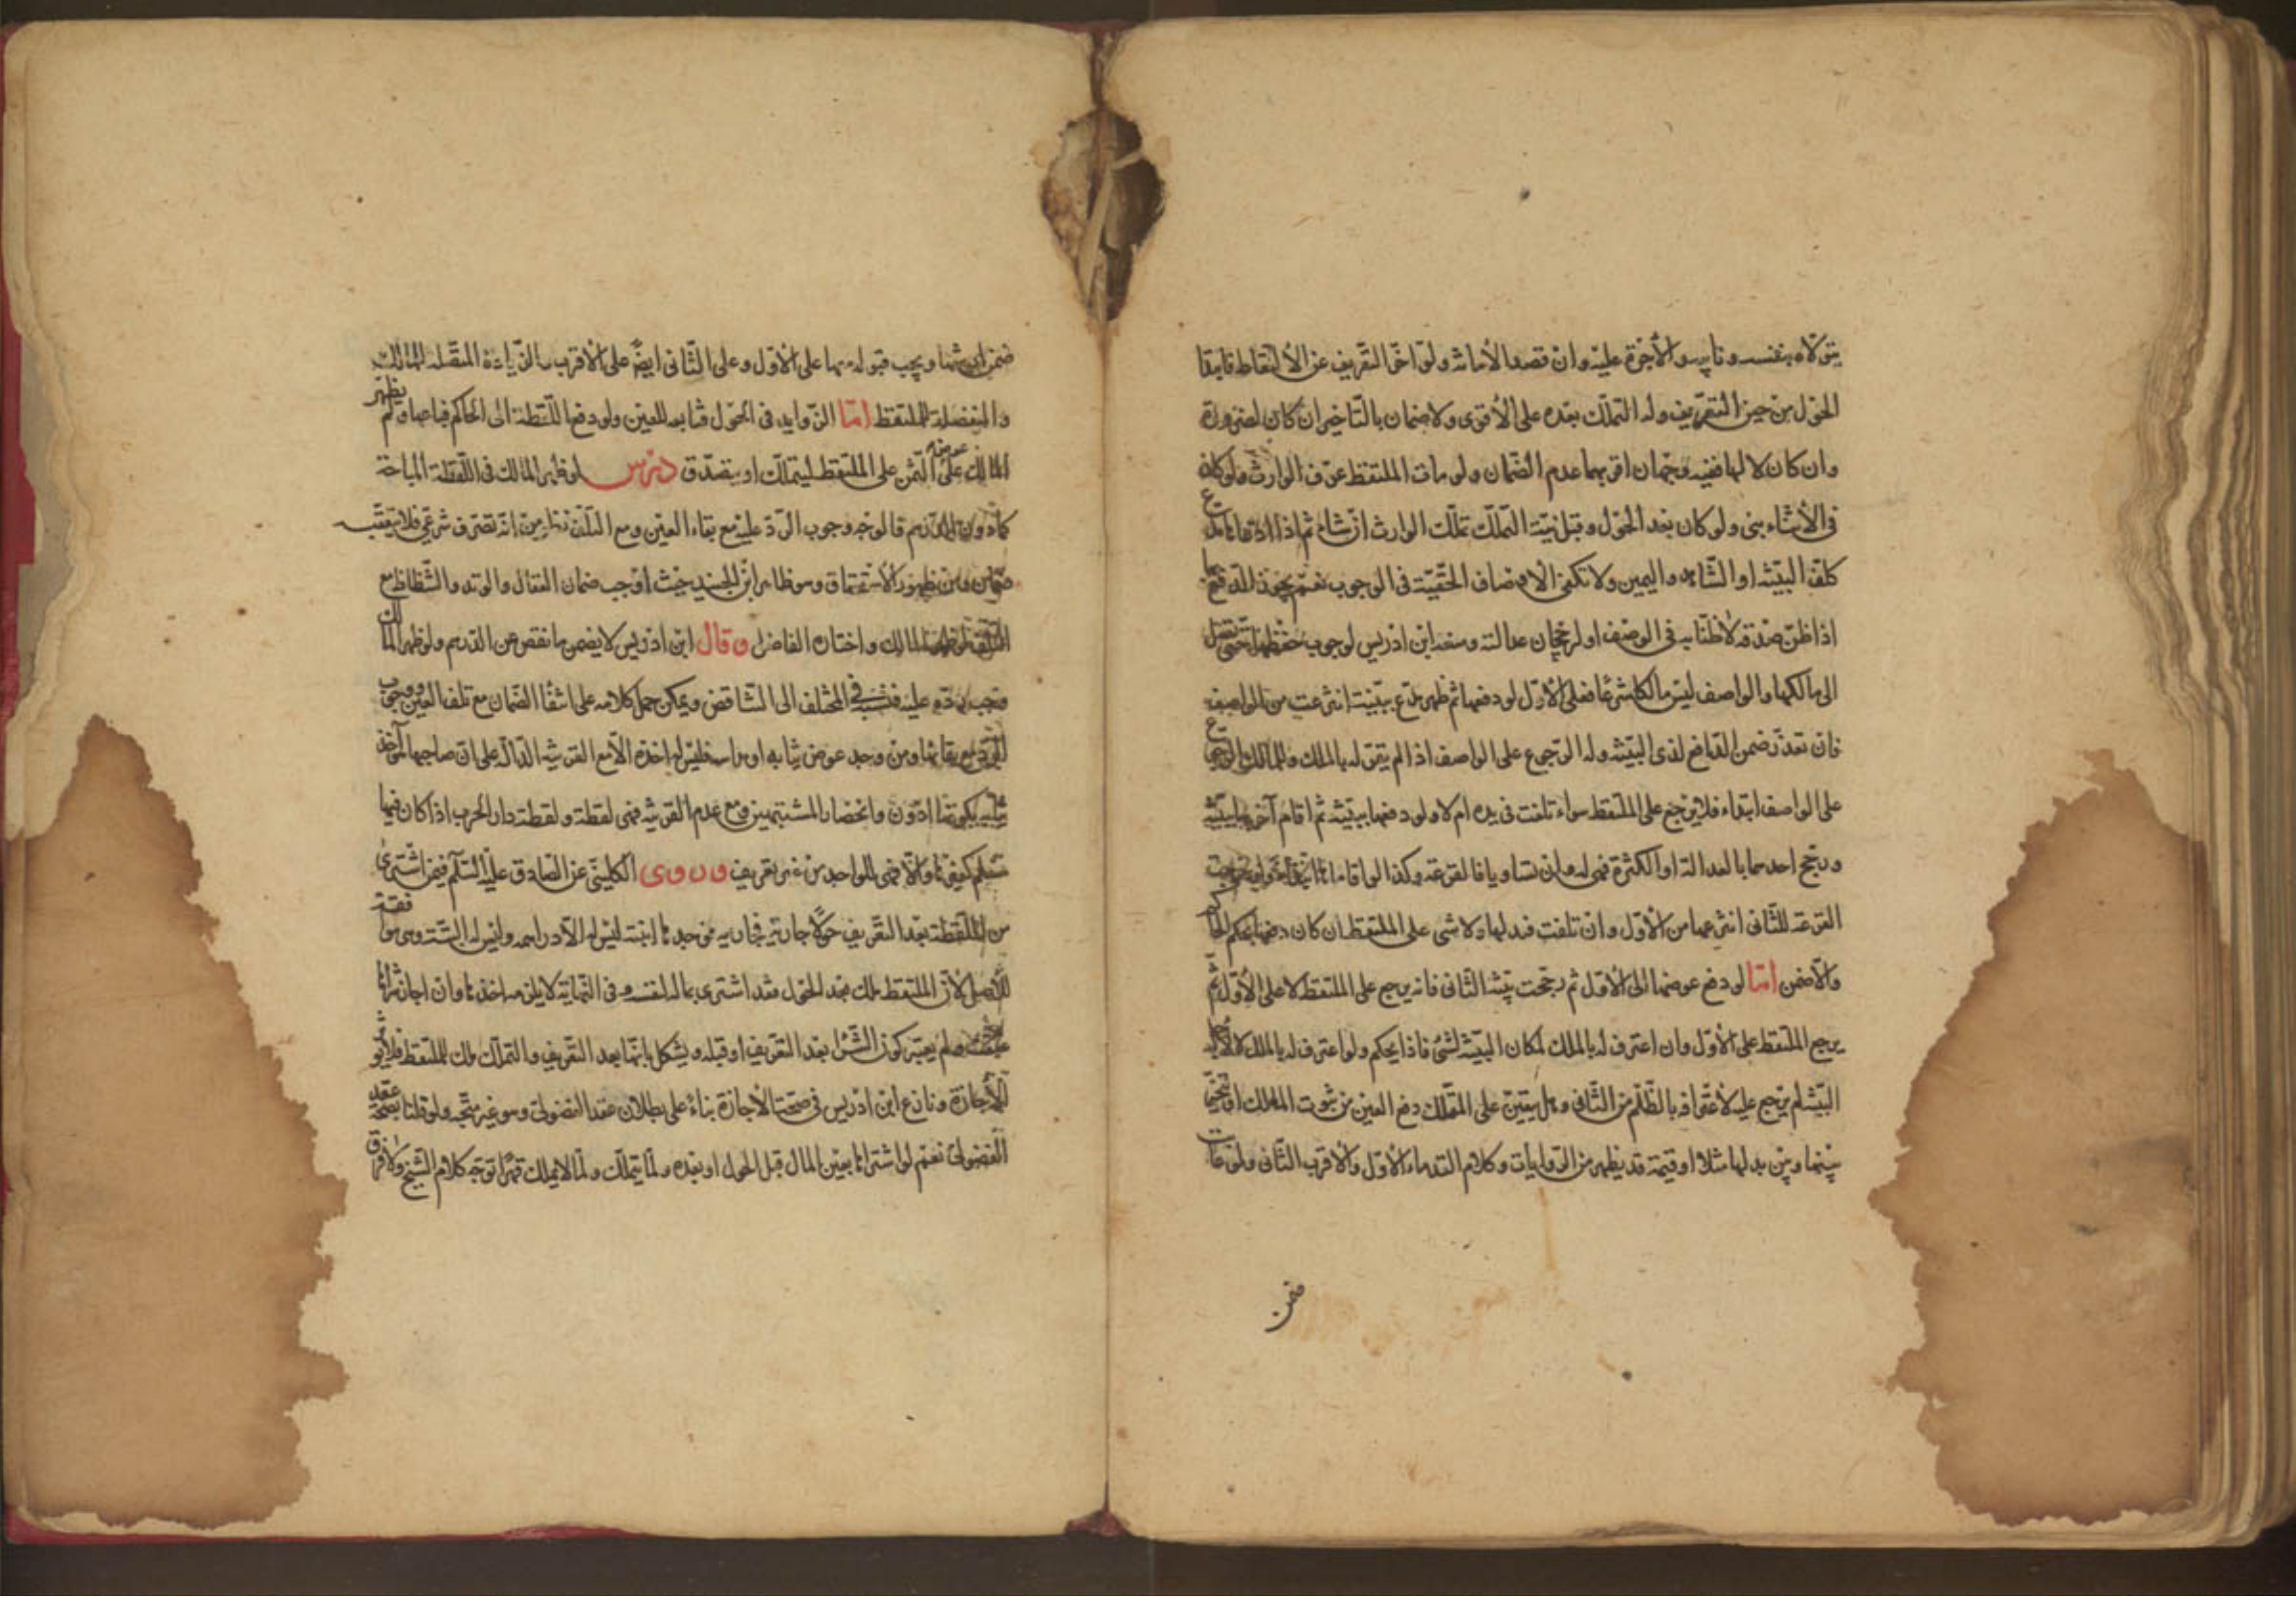 يتولاه بنفسه ونايبه والأجرة عليه وان قصد الأمانة ولو اخر التعريف عن الالتقاط فابتدا
الحول من حين التعريف وله التملك بعده على الأقوى ولا ضمان بالتاخير ان كان لضرورة
وان كان لا لها ففيه وجهان اقربهما عدم الضمان ولو مات الملتقط عرف الوارث ولو كان
فى الأثناء بنى ولو كان بعد الحول وقبل نية التملك تملك الوارث ان شاء ثم اذا ادعاها مدع
كلف البينة او الشاهد واليمين ولا تكفى الاوصاف الخفية فى الوجوب نعم يجوز الدفع بها
اذا ظن صدقه لاطنابه فى الوصف او لرجحان عدالته ومنعه ابن ادريس لوجوب حفظها حتى تصل
الى مالكها والواصف ليس مالكا شرعا فعلى الأول لو دفعها ثم ظهر مدع ببينة انتزعت من الواصف
فان تعذر ضمن الدافع لذى البينة وله الرجوع على الواصف اذا لم يقر له بالملك وللمالك الرجوع
على الواصف ابتداء فلا يرجع على الملتقط سواء تلفت فى يده ام لا ولو دفعها ببينة ثم اقام آخر بها بينة
ورجح احدهما بالعدالة او الكثرة فهى له وان تساويا فالقرعة وكذا لو اقاماها ابتداء ولو خرجت
القرعة للثانى انتزعها من الأول وان تلفت فبدلها ولا شى على الملتقط ان كان دفعها بحكم الحاكم
والا ضمن امّا لو دفع عوضها الى الأول ثم رجحت بينة الثانى فانه يرجع على الملتقط لا على الأول ثم
يرجع الملتقط على الأول وان اعترف له بالملك لمكان البينة لشئ فاذا يحكم ولو اعترف له بالملك لا لأجل
البينة لم يرجع عليه لاعترافه بالظلم من الثانى وهل يتعين على المتملك دفع العين من ثبوت المالك او يتخير
بينها وبين بدلها مثلا او قيمة قد يظهر من الروايات وكلام القدماء الأول والأقرب الثانى ولو عابت
ضمن
ضمن ارشها ويجب قبوله معها على الأول وعلى الثانى ايضا على الاقرب والزيادة المتصلة للمالك
والمنفصلة للملتقط امّا الزوايد فى الحول فتابعه للعين ولو دفع اللقطة الى الحاكم فباعها ولم يظهر
المالك عرض الثمن على الملتقط ليتملك او يتصدق درس لو ظهر المالك فى اللقطة المباحة
كما دون الدرهم فالوجه وجوب الرد عليه مع بقاء العين ومع التلف نظر من انه تصرف شرعى فلا يتعقبه
ضمان ومن ظهور الاستحقاق وهو ظاهر ابن الجنيد حيث اوجب ضمان العقال والوتد والشظاظ مع
التلف لو ظهر المالك واختاره الفاضل وقال ابن ادريس لا يضمن ما نقص عن الدرهم ولو ظهر المالك
وجب رده عليه فنسبه فى المختلف الى التناقض ويمكن حمل كلامه على انتفاء الضمان مع تلف العين ووجوب
الرد مع بقائها ومن وجد عوض ثيابه او مداسه فليس له اخذه الا مع القرينة الدالة على ان صاحبها آخذ
ثيابه بكونها ادون وانحصار المشتبهين ومع عدم القرينة فهى لقطة ولقطة دار الحرب اذا كان فيها
مسلم كغيرها والا فهى للواجد من غير تعريف وروى الكلينى عن الصادق عليه السلم فيمن اشترى
من اللقطة بعد التعريف حولا جارية فجاء ربه فوجدها ابنته ليس له الا دراهمه وليس له البنت وهى موافقة
للأصل لأن الملتقط ملك بعد الحول فقد اشترى بماله لنفسه وفى النهاية لا يلزمه اخذها وان اجاز شراها
صح ولم يعتبر كون الشرا بعد التعريف او قبله ويشكل بانها بعد التعريف والتملك ملك للملتقط فلا يؤثر
الاجازة ونازع ابن ادريس فى صحة الاجازة بناء على بطلان عقد الفضولى وهو غير متجه ولو قلنا بصحة عقد
الفضولى نعم لو اشتراها بعين المال قبل الحول او بعده ولما يتملك ولما لا يملك قهرا توجه كلام الشيخ ولا فرق